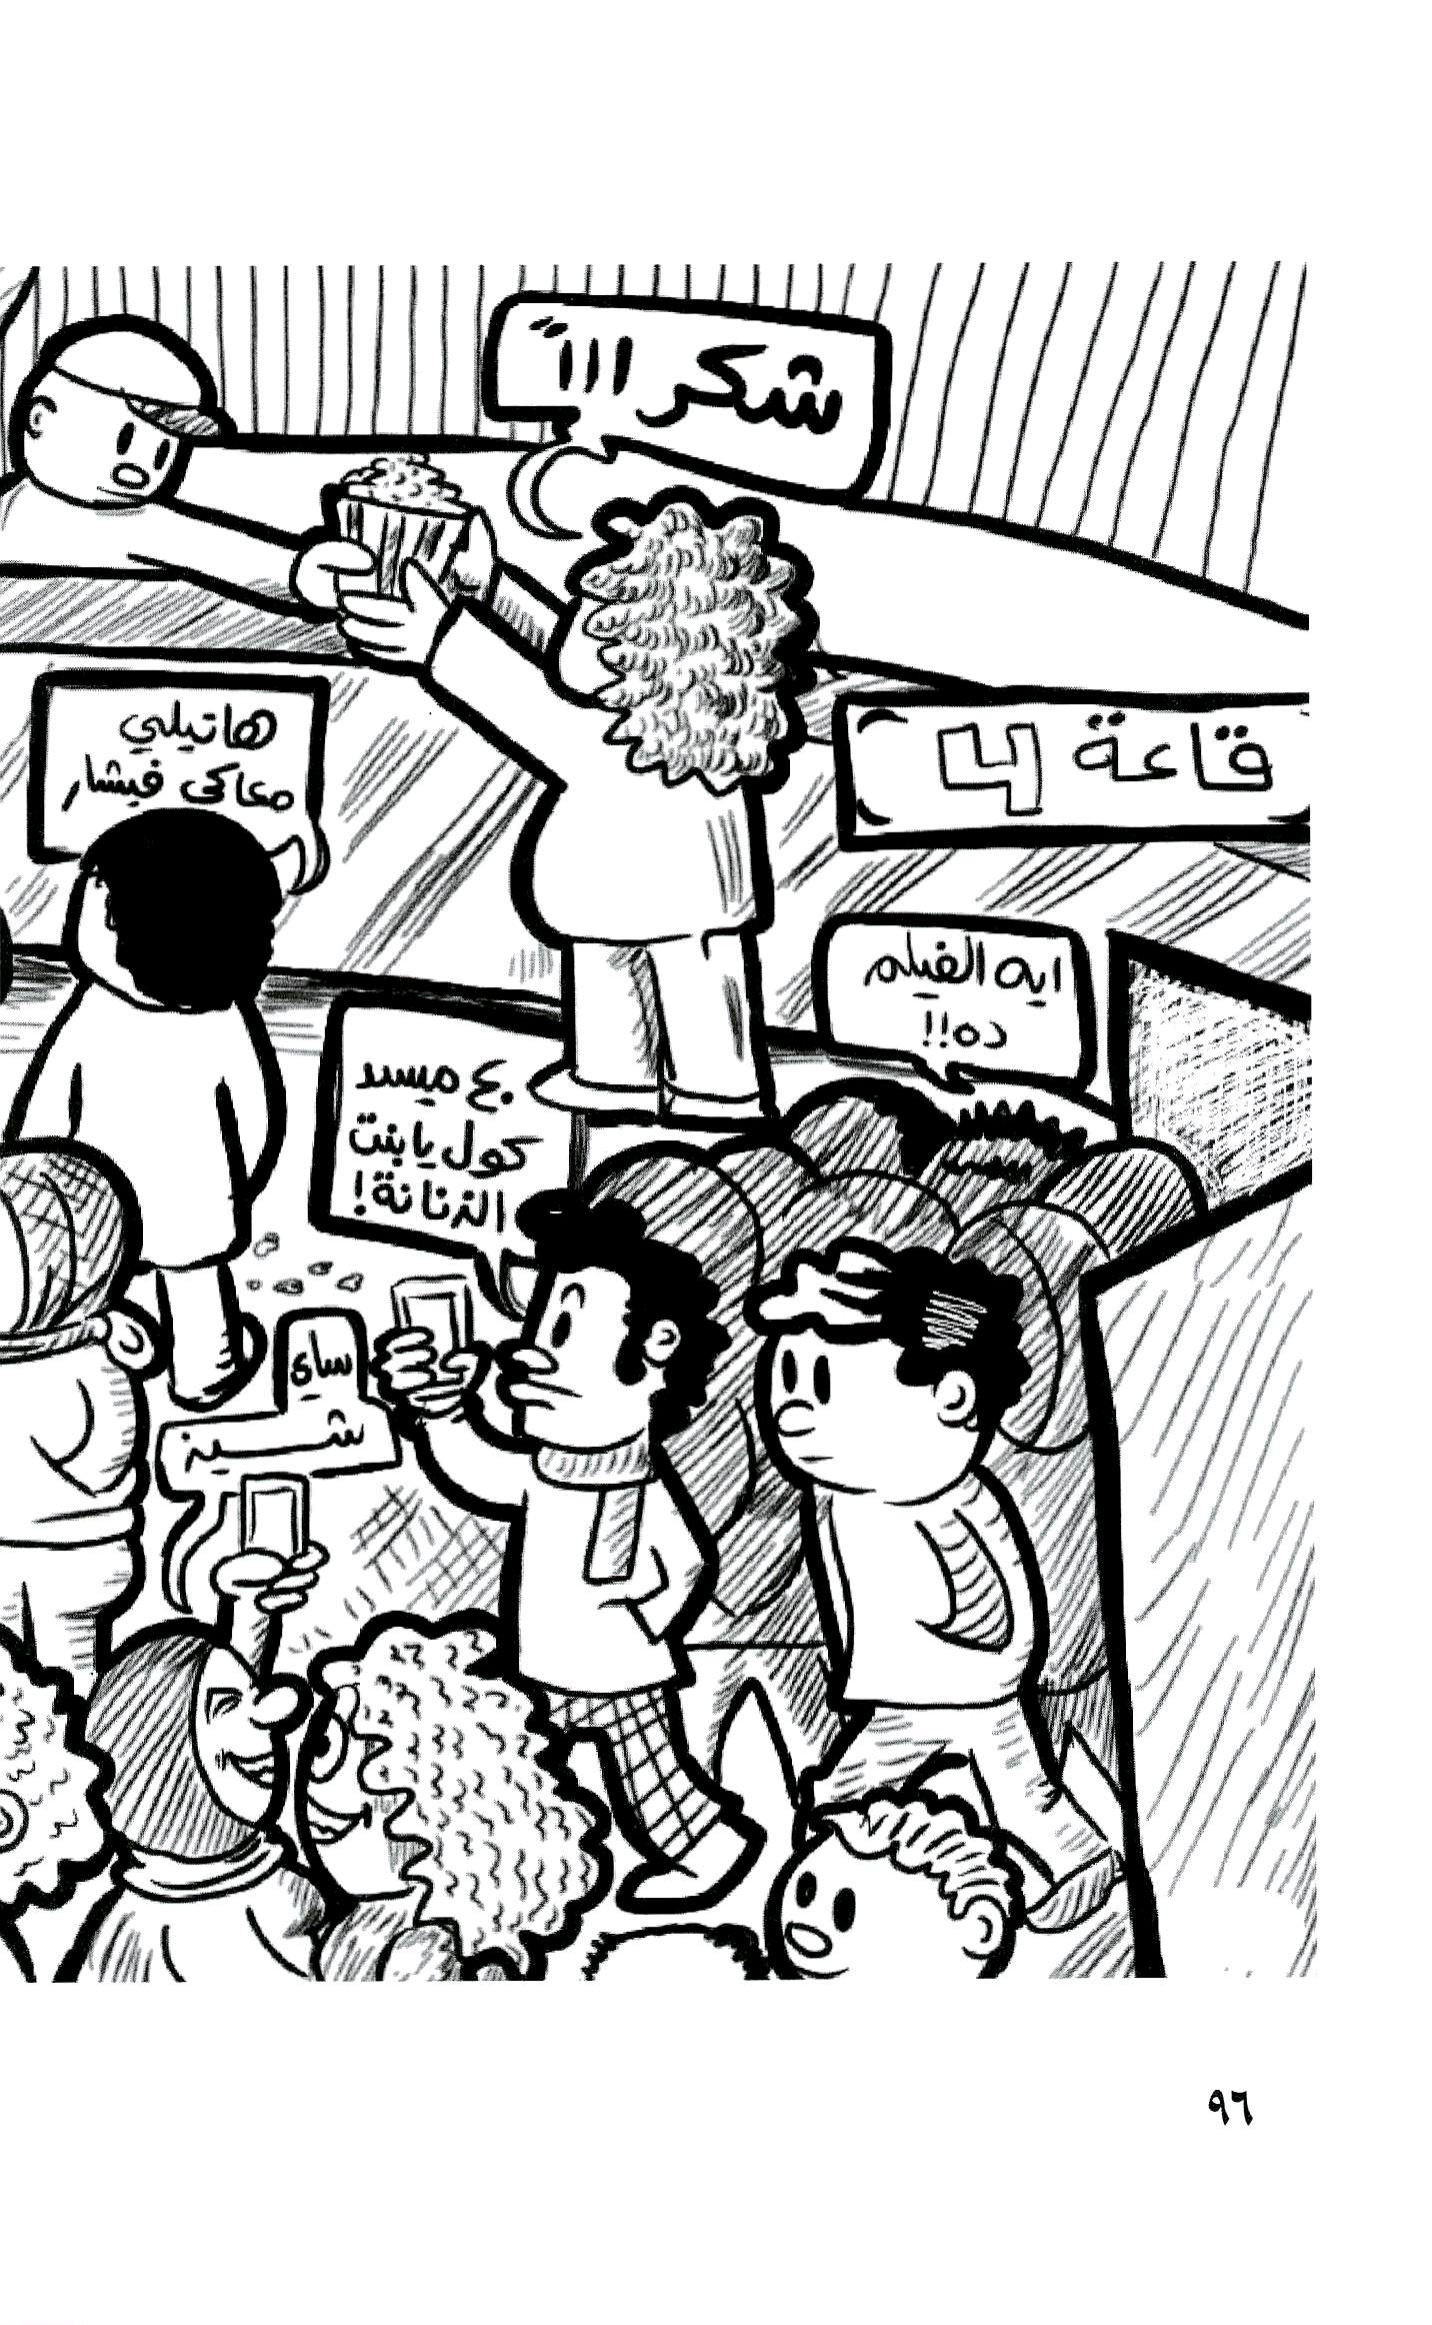 شكر ااا"
هاتيلي
معاكي فيشار
قاعة 4
ايه الفيلم
ده!!
٤ ميسد
كول يا بنت
الزنانة!
ساي
شـــيز
٩٦